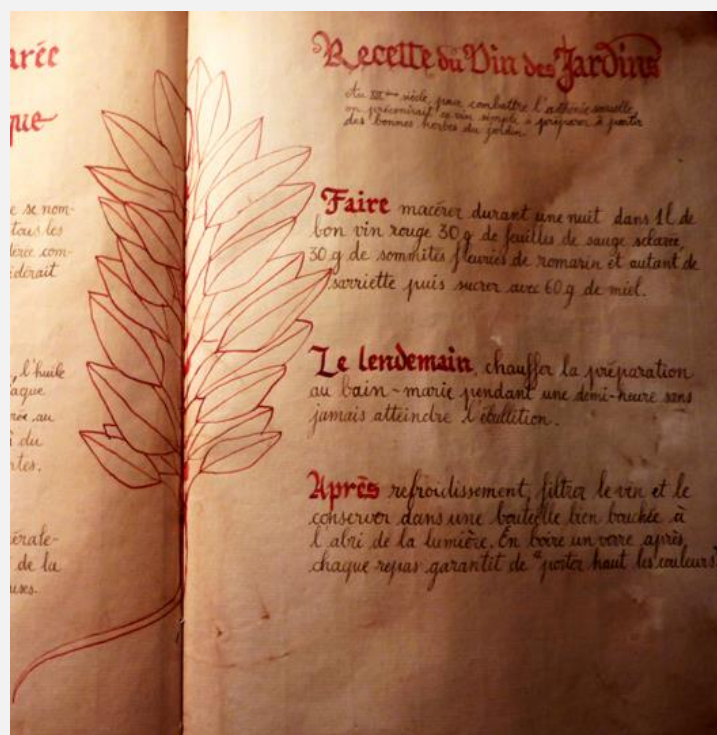 arée
que
e se nom-
tous les
dérée com-
idérait
, l'huile
aque
rée au
i du
ntes.
érale-
de la
uses.
Recette du Vin des Jardins
Au siècle, pour combattre l'asthénie sexuelle,
on préconisait ce vin simple à préparer à partir
des bonnes herbes du jardin
Faire macérer durant une nuit dans 1l de
bon vin rouge 30g de feuilles de sauge sclarée,
30g de sommités fleuries de romarin et autant de
sarriette puis sucrer avec 60g de miel.
Le lendemain, chauffer la préparation
au bain-marie pendant une demi-heure sans
jamais atteindre l'ébullition.
Après refroidissement, filtrer le vin et le
conserver dans une bouteille bien bouchée à
l'abri de la lumière. En boire un verre après
chaque repas garantit de "porter haut les couleurs"